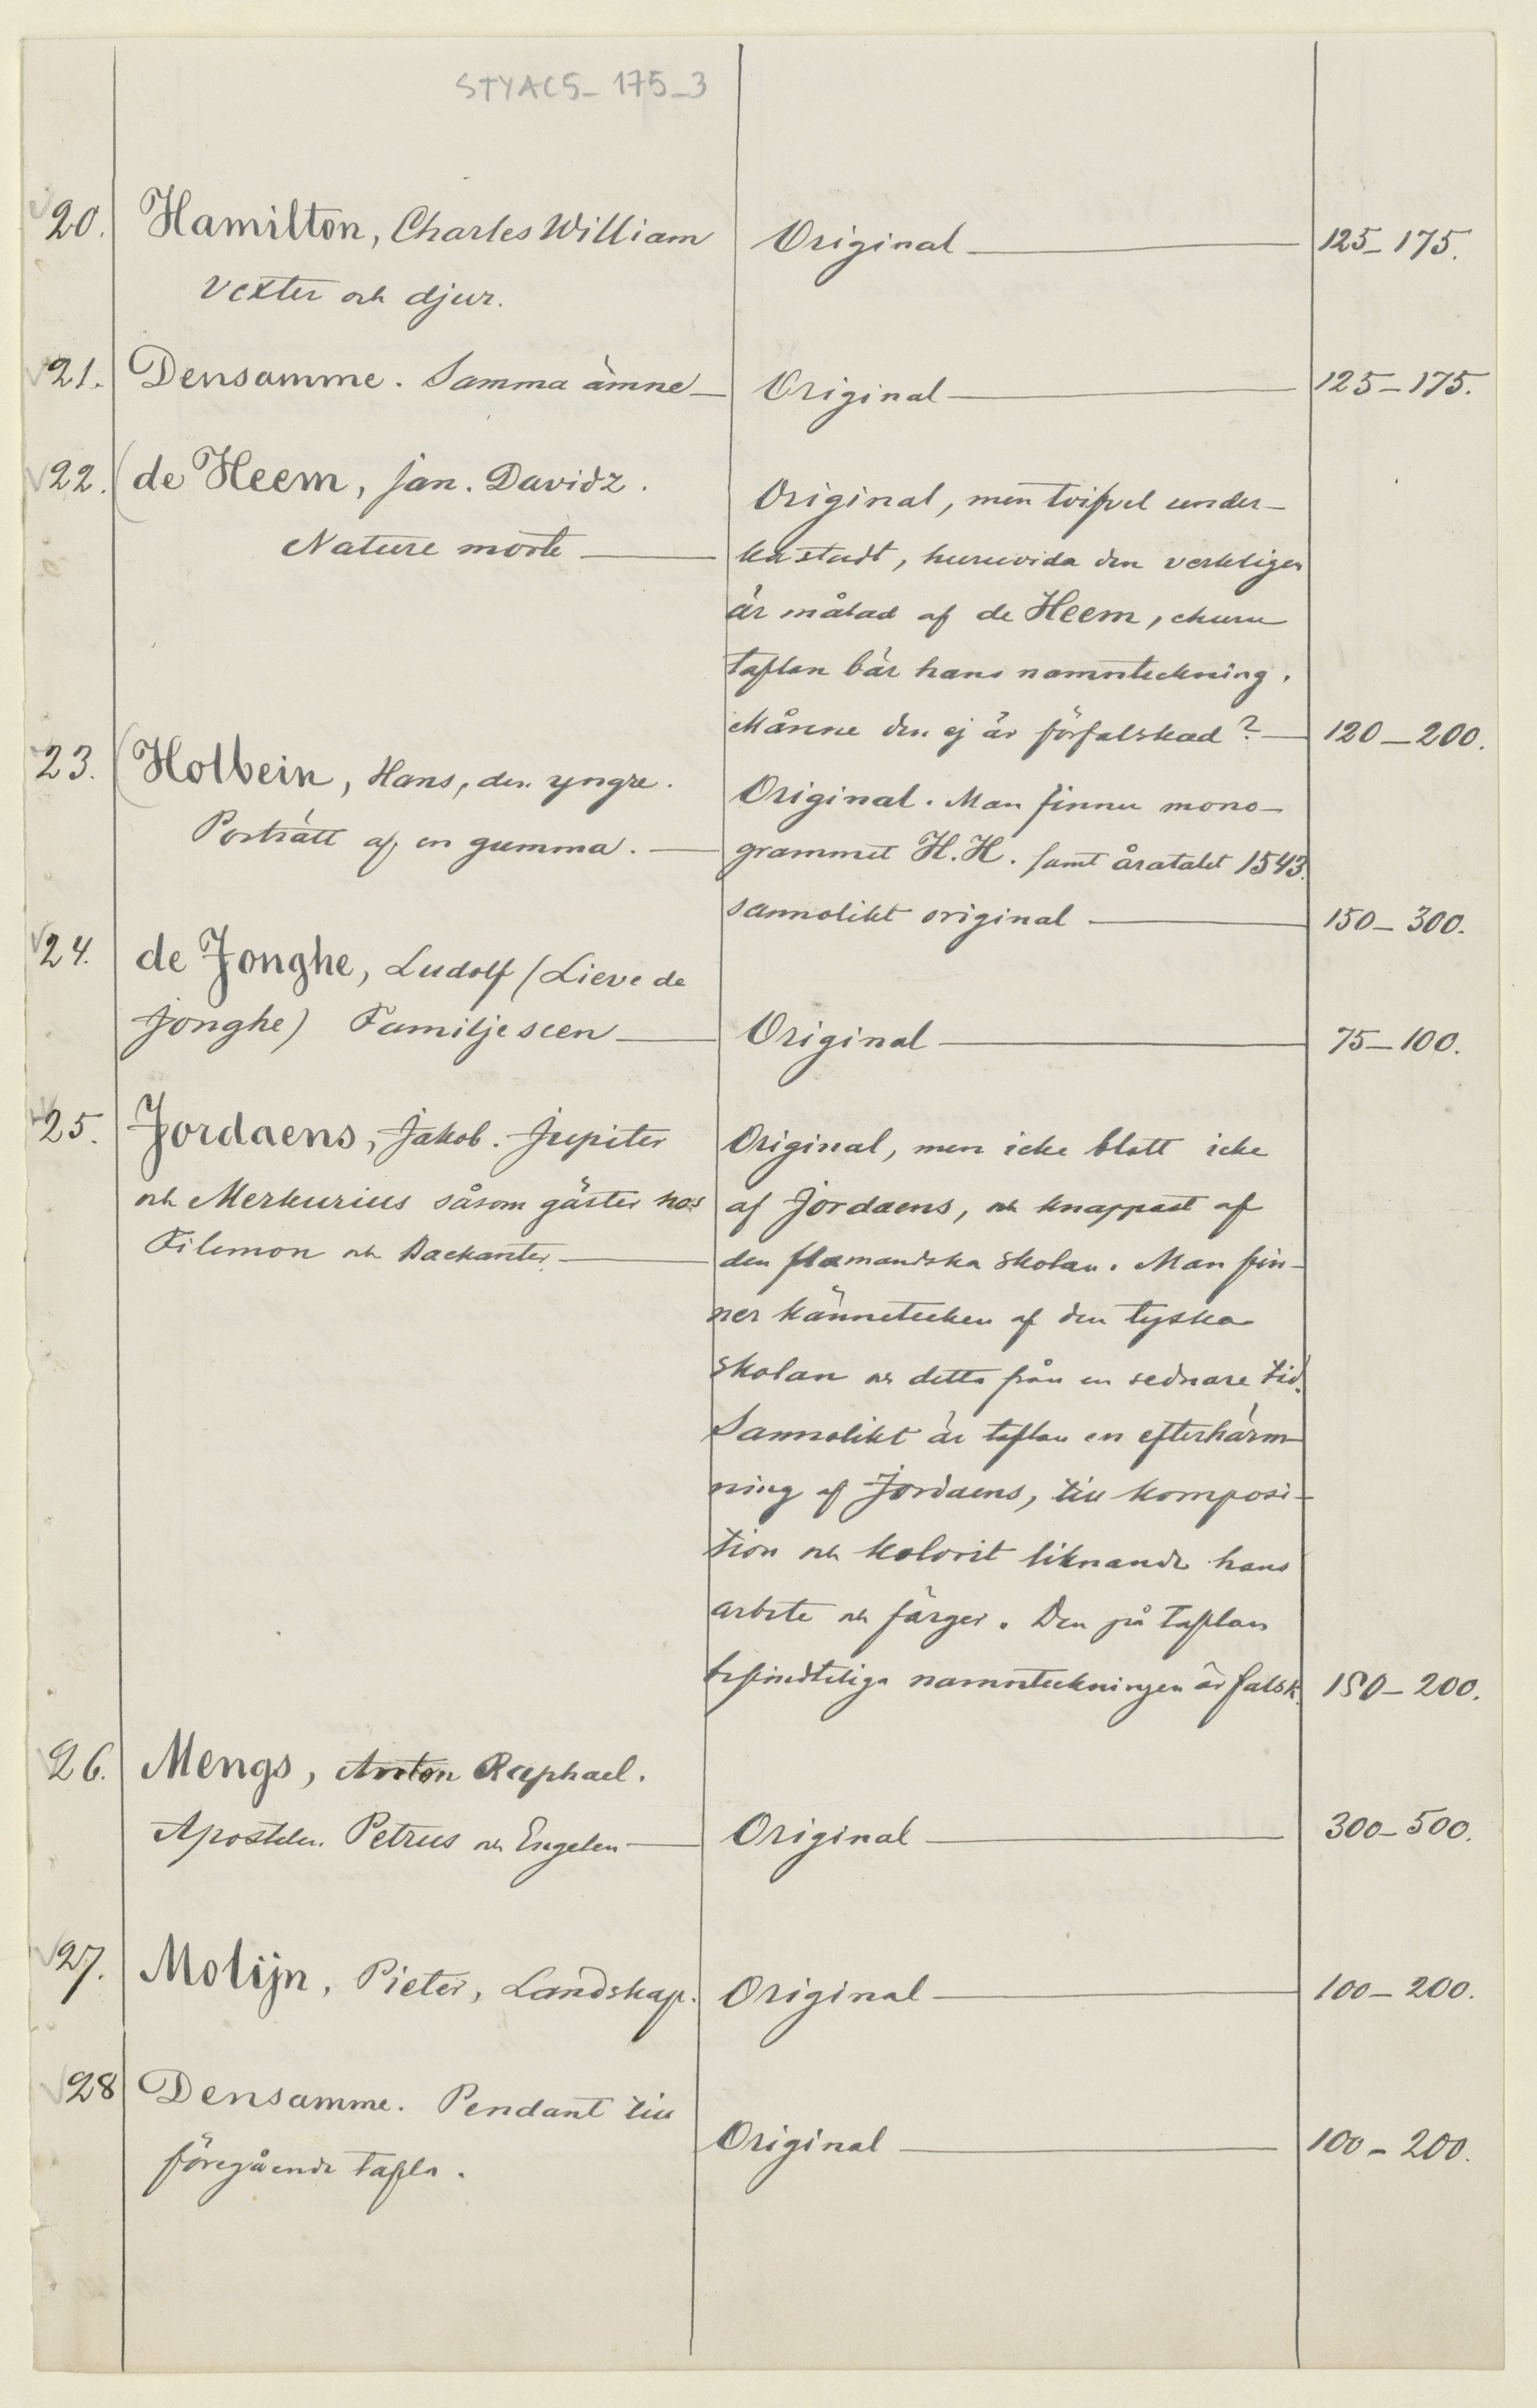 STYAC5_175_3
20. Hamilton, Charles William Original 125_175.
Vexter och djur.
21. Densamme. Samma ämne Original 125_175.
22. de Heem, Jan. Davidz.
Original, men tvifvel under-
Nature morte
kastadt, huruvida den verkligen
är målad af de Heem, ehuru
taflan bär hans namnteckning.
Månne den ej är förfalskad? 120_200.
23. Holbein, Hans, den yngre.
Original. Man finner mono-
Porträtt af en gumma.
grammet H.H. samt åratalet 1543.
sannolikt original 150_300.
24. de Jonghe, Ludolf (Lieve de
Jonghe) Familjescen Original 75_100.
25. Jordaens, Jakob. Jupiter Original, men icke blott icke
och Merkurius såsom gäster hos af Jordaens, och knappast af
Filemon och Backanter den flamandska skolan. Man fin-
ner kännetecken af den tyska
skolan och detta från en sednare tid.
Sannolikt är taflan en efterhärm
ning af Jordaens, till komposi-
tion och kolorit liknande hans
arbete och färger. Den på taflan
befindtliga namnteckningen är falsk. 150_200.
26. Mengs, Anton Raphael.
Apostelen Petrus och Engelen Original 300_500.
27. Molijn, Pieter, Landskap. Original 100_200.
28 Densamme. Pendant till
Original 100_200.
föregående tafla.